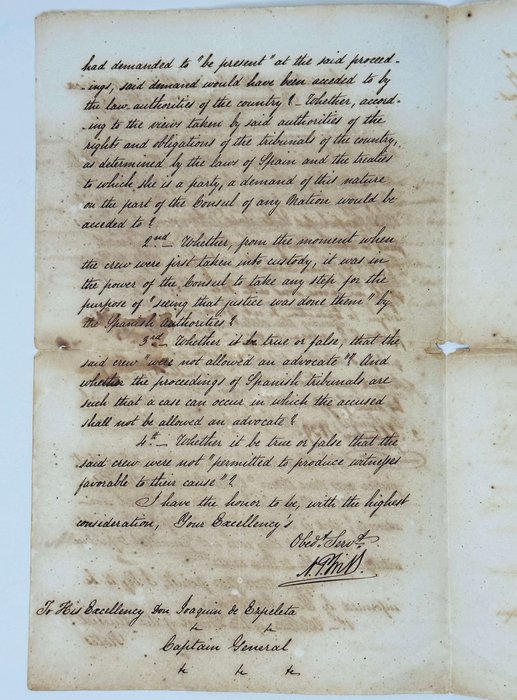 had demanded to "be present" at the said proceed-
-ings, said demand would have been acceded to by
the law authorities of the country? - Whether, accord-
-ing to the views taken by said authorities of the
rights and obligations of the tribunals of the country,
as determined by the laws of Spain and the treaties
to which she is a party, a demand of this nature
on the part of the Consul of any Nation would be
acceded to?
2nd - Whether, from the moment when
the crew were first taken into custody, it was in
the power of the Consul to take any step for the
purpose of "seeing that justice was done them" by
the Spanish Authorities?
3rd - Whether it be true or false, that the
said crew "were not allowed an advocate"? And
whether the proceedings of Spanish tribunals are
such that a case can occur in which the accused
shall not be allowed an advocate?
4th - Whether it be true or false that the
said crew were not "permitted to produce witnesses
favorable to their cause"?
I have the honor to be, with the highest
consideration, Your Excellency's
Obedt. Servt.
To His Excellency Don Joaquin de Ezpeleta
Captain General